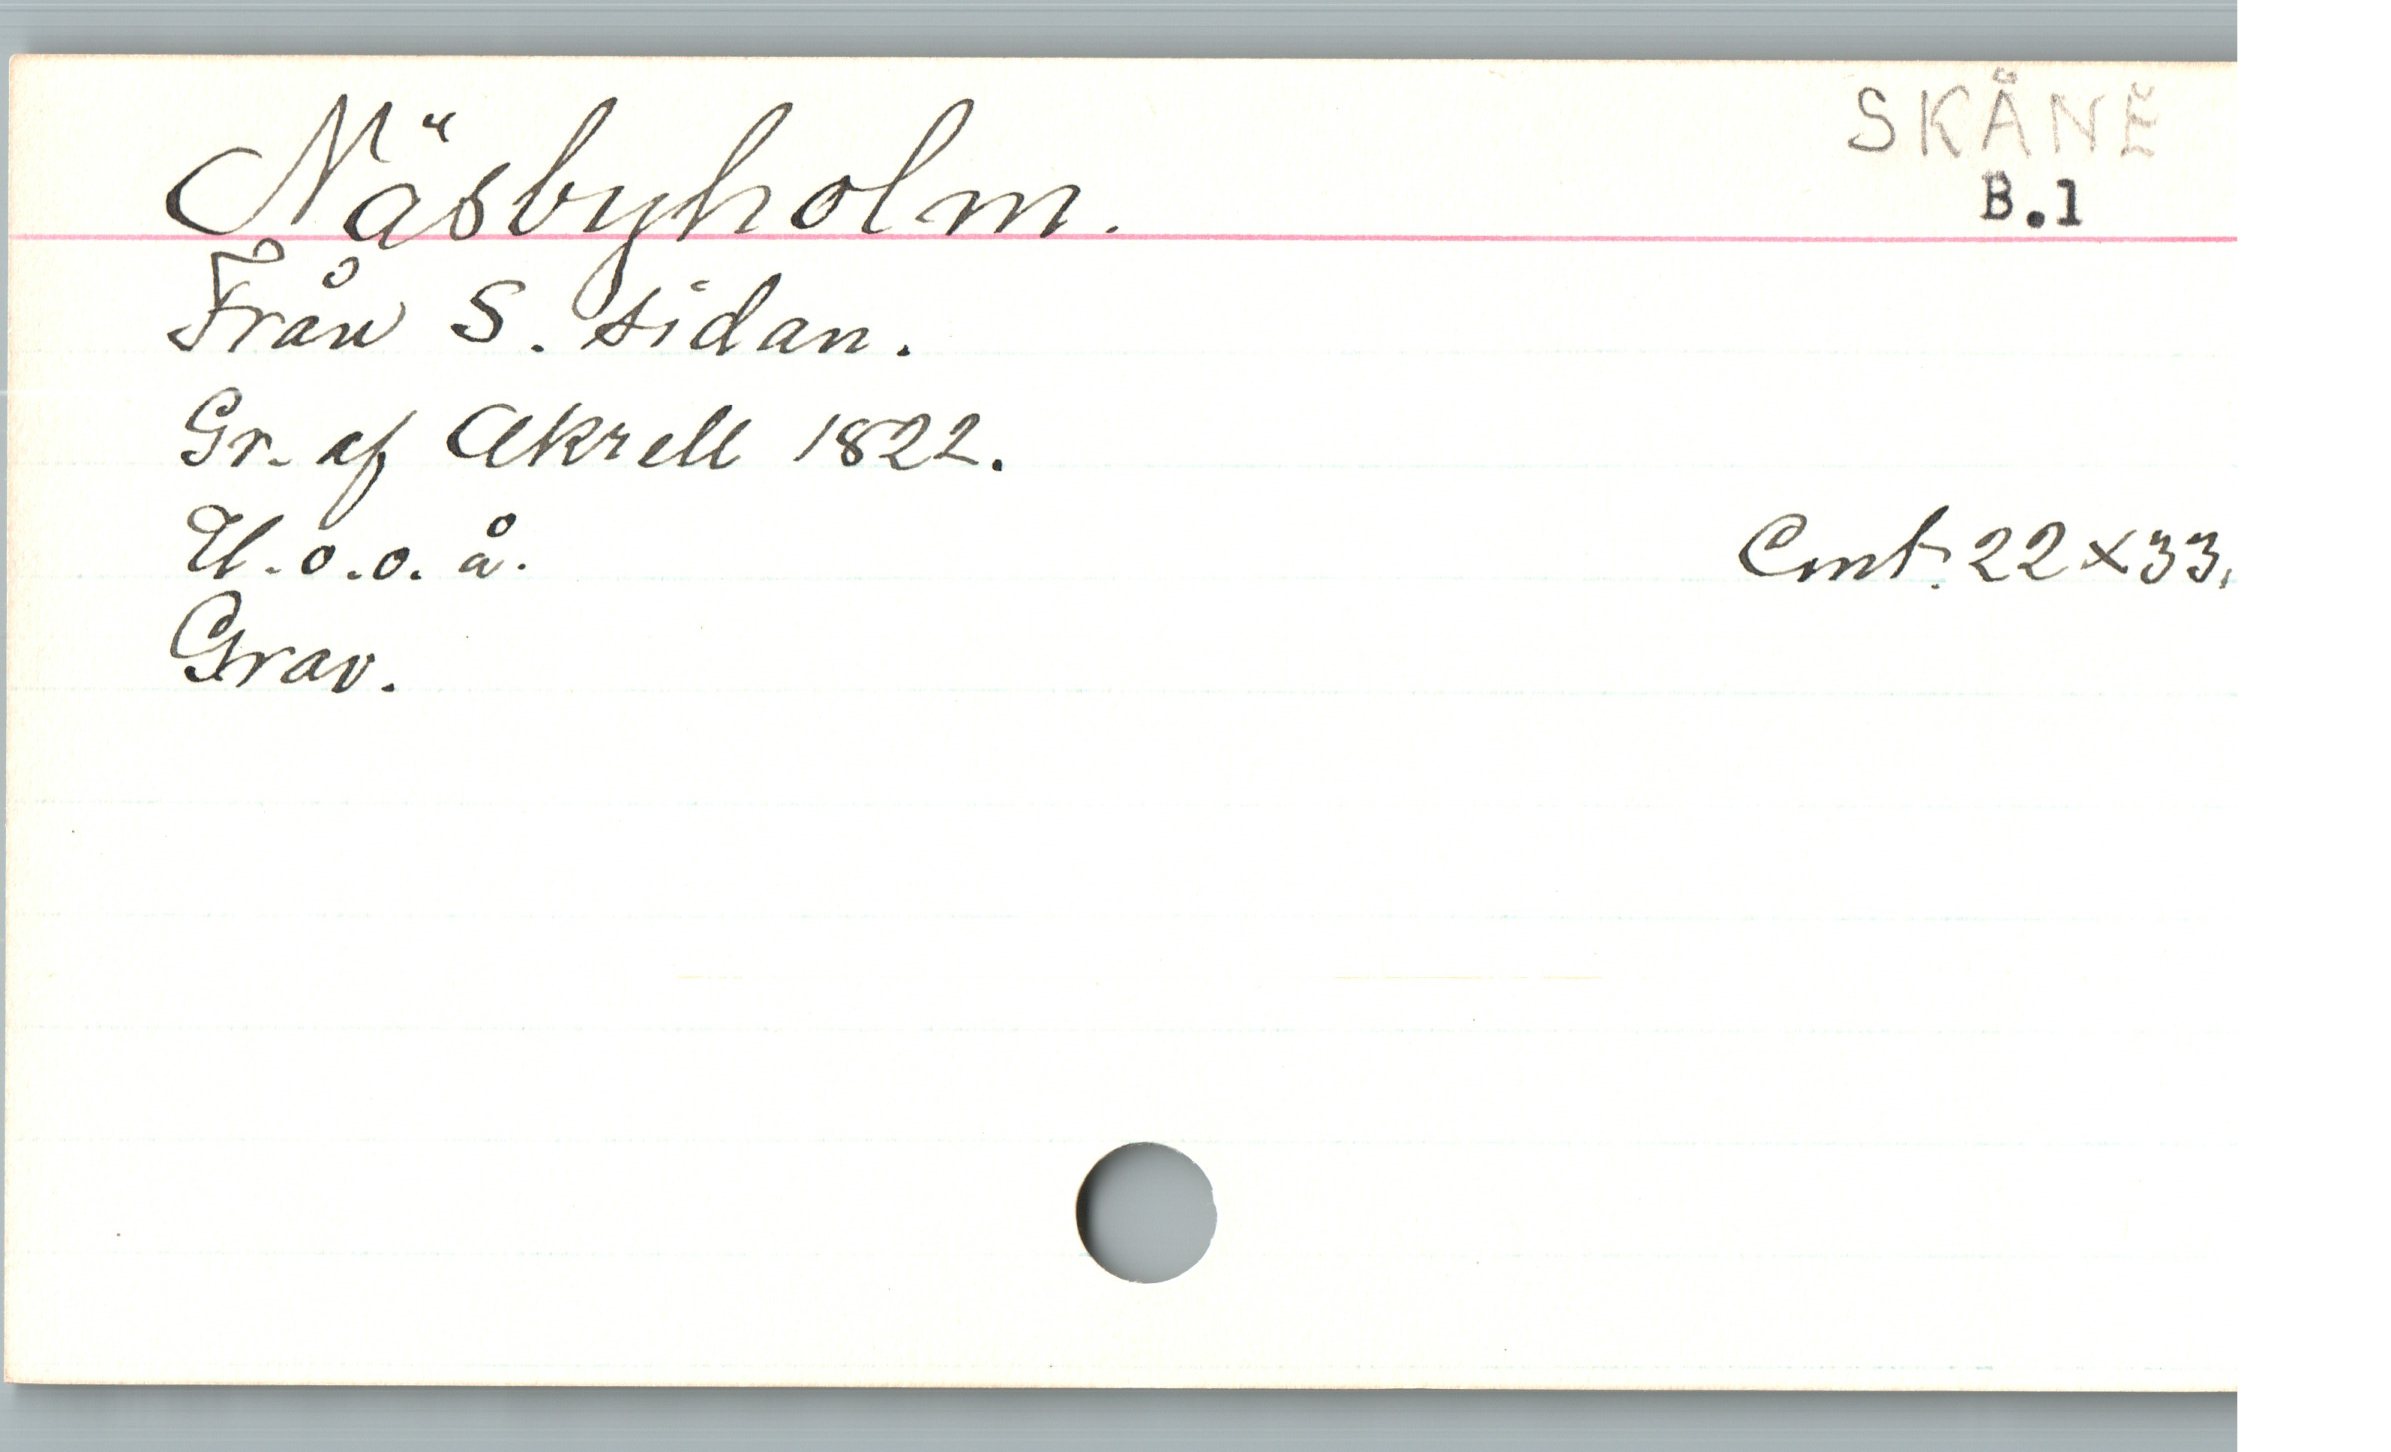 Näsbyholm.
SKÅNE
B.1
Från S. sidan.
Gr. af Akrell 1822.
U.o.o.å.
Cmt. 22×33.
Grav.